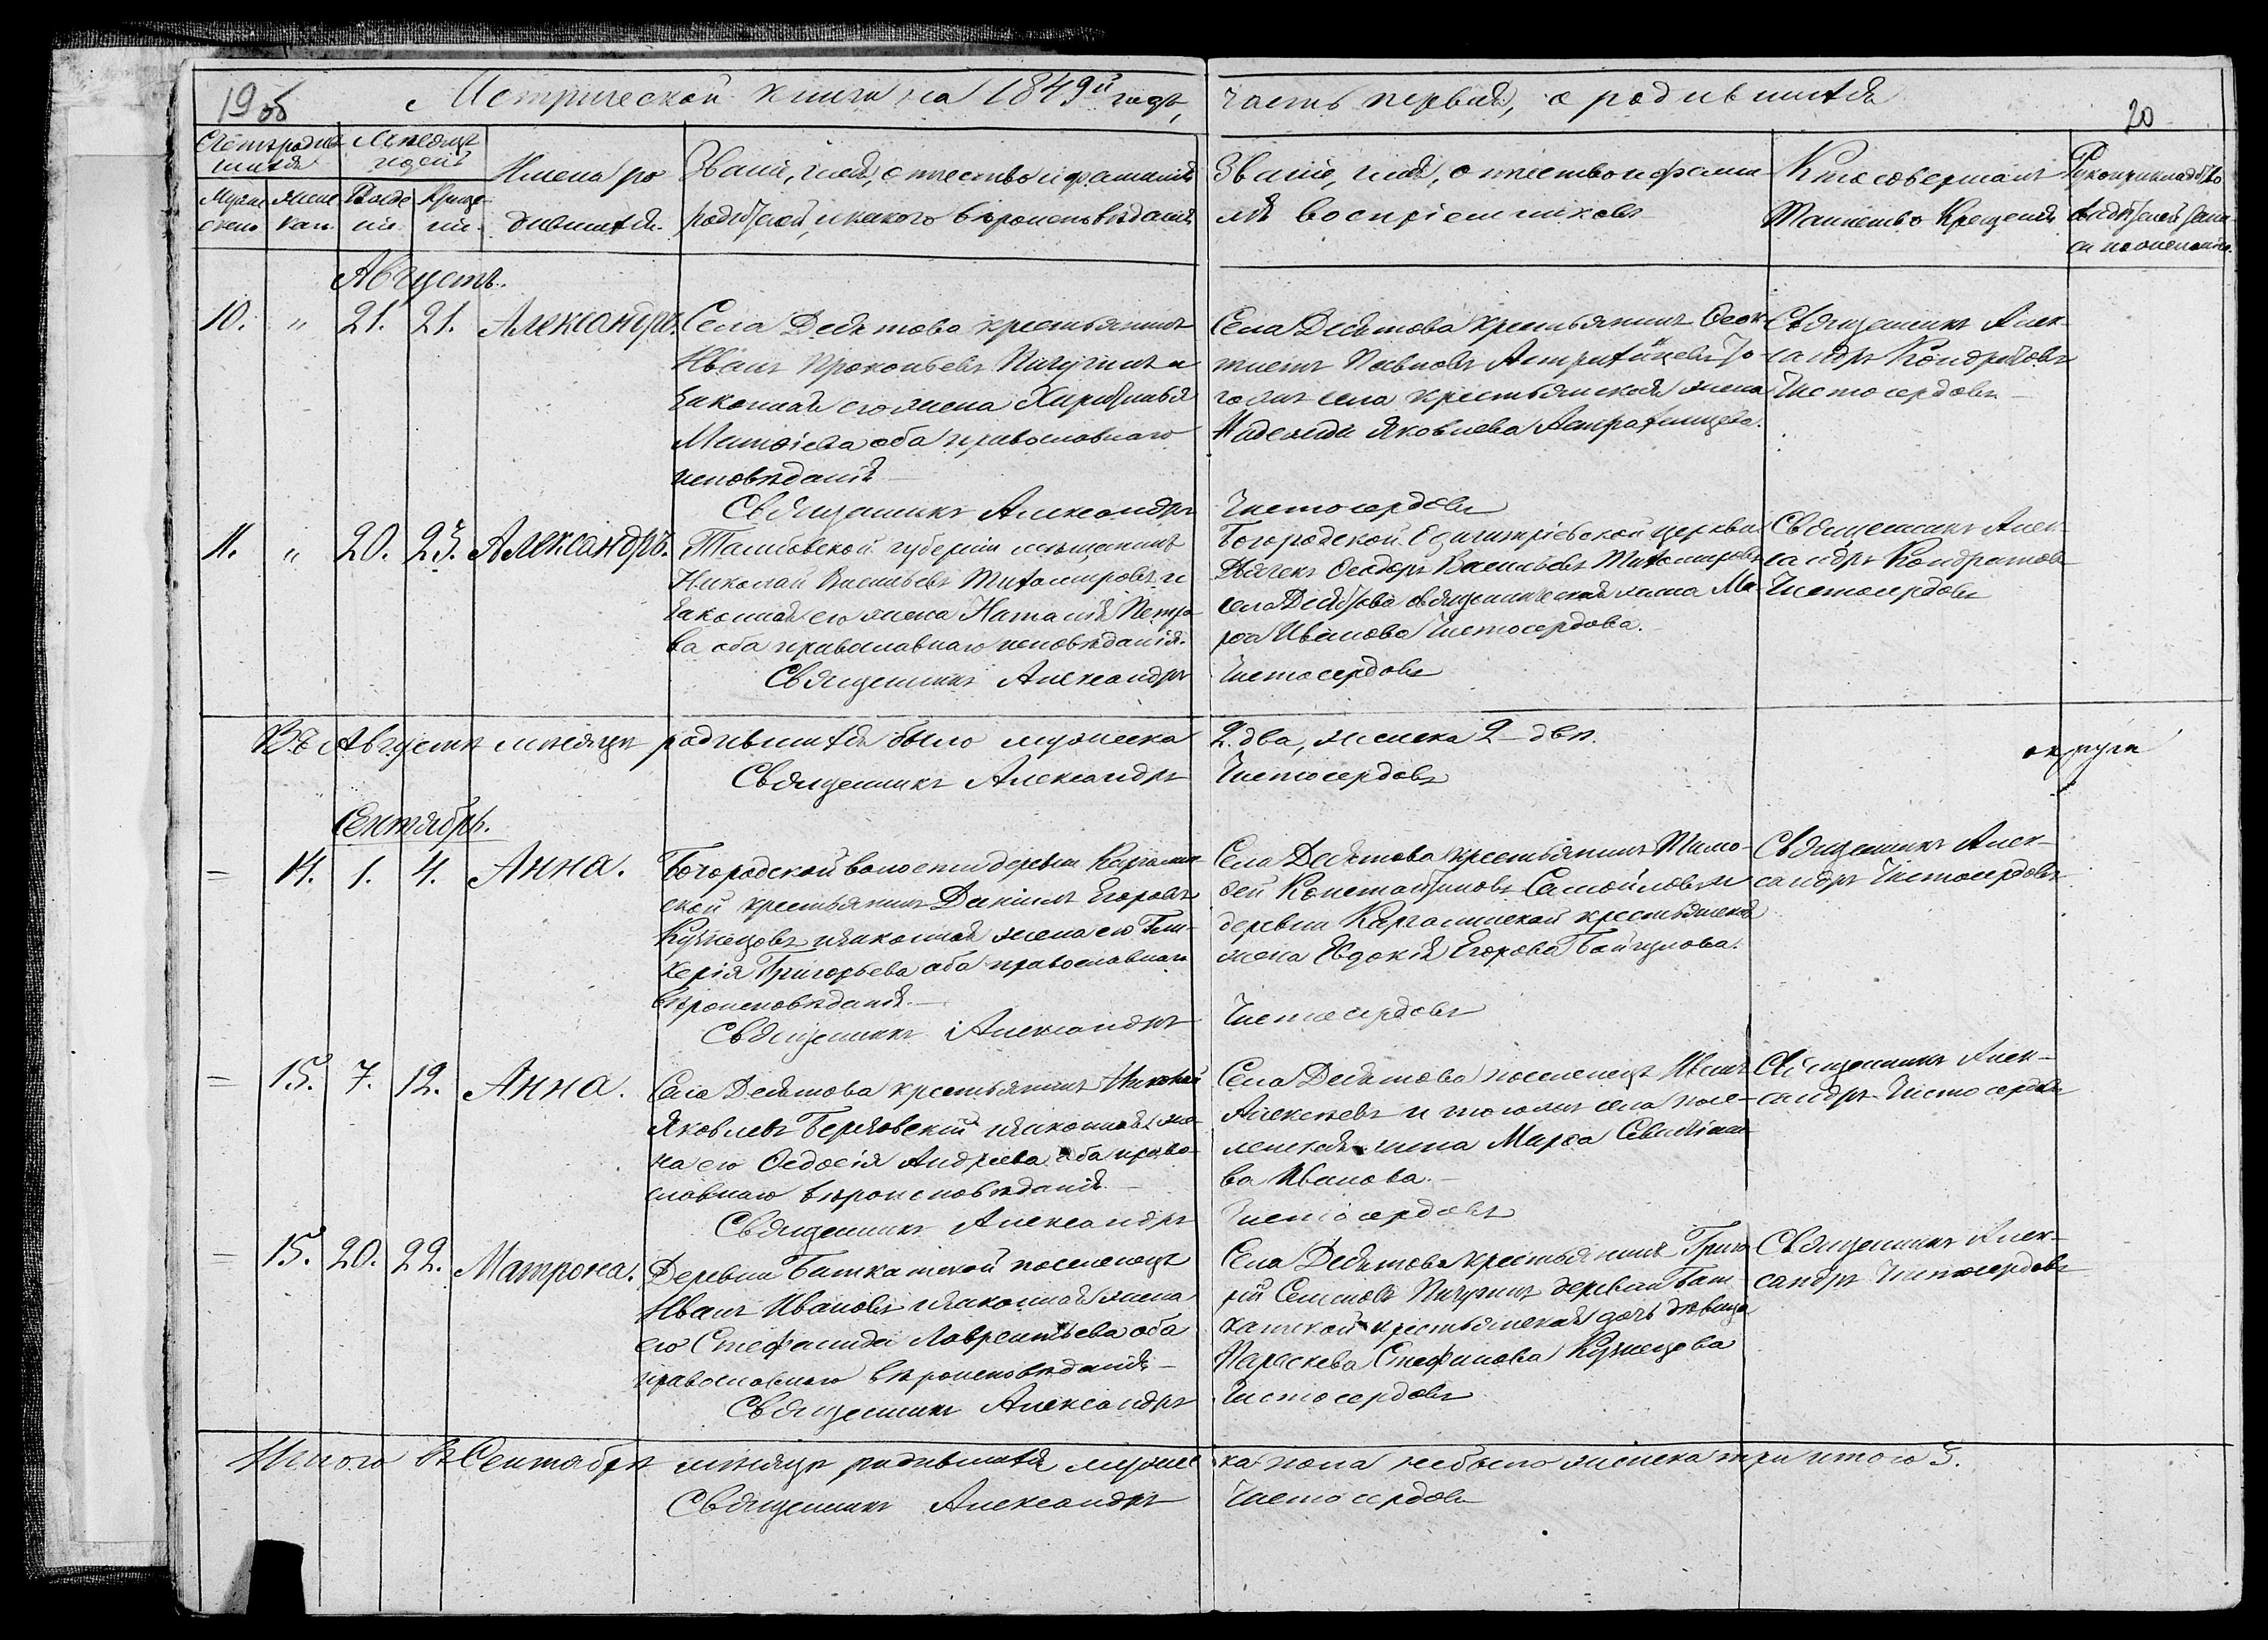 19об
Метрической книги на 1849й годъ,
часть первая, о родившихся
20
Счетъ родив
шихся
Мѣсяцъ
и день
Имена ро
дившихся.
Званіе, имя, отчество и фамилія
родителей, и какого вѣроисповѣданія
Званіе, имя, отчество и фами
лія воспріемниковъ
Кто совершалъ
Таинство Крещенія
Рукоприкладство
свидѣтелей запи
си по желанію.
Муже
скаго
Жен
кап.
Рожде
нія.
Креще
нія.
Августъ.
10. " 21. 21. Александръ.
Села Десятова крестьянинъ
Иванъ Прокопьевъ Пичугинъ и
законная его жена Харитинья
Матѳіева оба православнаго
исповѣданія
Священникъ Александръ
Села Десятова крестьянинъ Ѳеок-
тистъ Павловъ Астраханцевъ То-
гожъ села крестьянская жена
Надежда Яковлева Астраханцева.
Чистосердовъ
Священникъ Алек-
сандръ Кондратовъ
Чистосердовъ
11. " 20. 23. Александръ.
Тамбовской губерніи мѣщанинъ
Николай Васильевъ Тихомировъ и
законная его жена Наталія Петро
ва оба православнаго исповѣданія.
Священникъ Александръ
Богородской Одигитріевской церкви
Дьячекъ Ѳеодоръ Васильевъ Тихомировъ
села Десятова священническая жена Ма-
рѳа Иванова Чистосердова.
Чистосердовъ
Священникъ Алек-
сандръ Кондратовъ
Чистосердовъ
Въ Августѣ мѣсяцѣ родившихся было мужеска
2. два, женска 2 двѣ.
Священникъ Александръ
Чистосердовъ
Сентябрь.
= 14. 1. 4. Анна.
Богородской волости деревни Каргалин
ской крестьянинъ Даніилъ Егоровъ
Кузнецовъ и законная жена его Гли-
керія Григорьева оба православнаго
вѣроисповѣданія.
Священникъ Александръ
Села Десятова крестьянинъ Тимо-
ѳей Константиновъ Самойловъ и
деревни Каргалинской крестьянская
жена Евдокія Егорова Байгулова.
Чистосердовъ
Священникъ Алек-
сандръ Чистосердовъ
= 15. 7. 12. Анна.
Села Десятова крестьянинъ Николай
Яковлевъ Березовскій и законная же-
на его Ѳедосія Андреева оба право-
славнаго вѣроисповѣданія.
Священникъ Александръ
Села Десятова поселенецъ Иванъ
Алексѣевъ и тогожъ села посе-
ленская жена Марѳа Севастіано-
ва Иванова.
Чистосердовъ
Священникъ Алек-
сандръ Чистосердовъ
= 15. 20. 22. Матрона.
Деревни Баткатской поселенецъ
Иванъ Ивановъ и законная жена
его Стефанида Лаврентьева оба
православнаго вѣроисповѣданія
Священникъ Александръ
Села Десятова крестьянинъ Григо
рій Семеновъ Пичугинъ деревни Бат-
катской крестьянская дочь дѣвица
Параскева Стефанова Кузнецова
Чистосердовъ
Священникъ Алек-
сандръ Чистосердовъ
Итого въ Сентябрѣ мѣсяцѣ родившихся мужес
ка пола небыло женска три итого 3.
Священникъ Александръ
Чистосердовъ